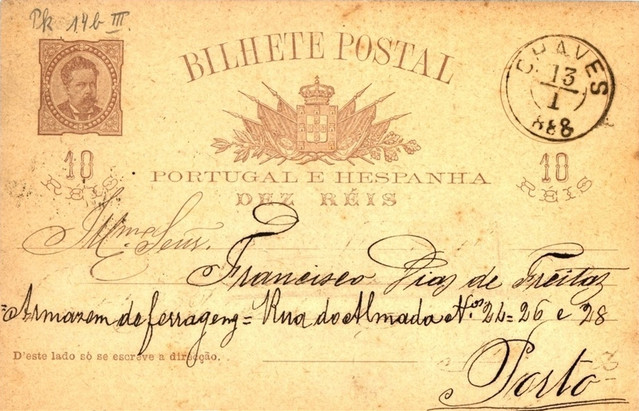 Pk 14b III.
BILHETE POSTAL
CHAVES
13
1
888
10
RÉIS
10
RÉIS
PORTUGAL E HESPANHA
DEZ RÉIS
Illmo. Senr.
Francisco Dias de Freitas
=Armazem de ferragens= Rua do Almada Nos. 24=26 e 28
D'este lado só se escreve a direcção.
Porto